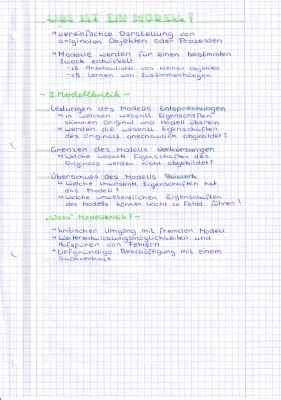 WAS IST EIN MODELL?
→ vereinfachte Darstellung von
originalen Objekten oder Prozessen
→ Modelle werden für einen bestimmten
Zweck entwickelt.
zB Anschaulichk. von kleinen Objekten
zB Lernen von Zusammenhängen
~ 2. Modellkritik ~
Leistungen des Modells: Entsprechungen
→ in welchen wesentl. Eigenschaften
stimmen Original und Modell überein
→ werden die wesentl. Eigenschaften
des Originals anschaulich abgebildet?
Grenzen des Modells: Verkürzungen
→ Welche wesentl. Eigenschaften des
Originals werden nicht abgebildet?
Überschuss des Modells: Beiwerk
→ Welche unwesentl. Eigenschaften hat
das Modell?
→ Welche unwesentlichen Eigenschaften
des Modells können leicht zu Fehld. führen?
„Wozu" Modellkritik? ~
→ kritischer Umgang mit fremden Modell.
→ Weiterentwicklungsmöglichkeiten und
Aufspüren von Fehlern
→ tiefgründige Beschäftigung mit einem
Sachverhalt